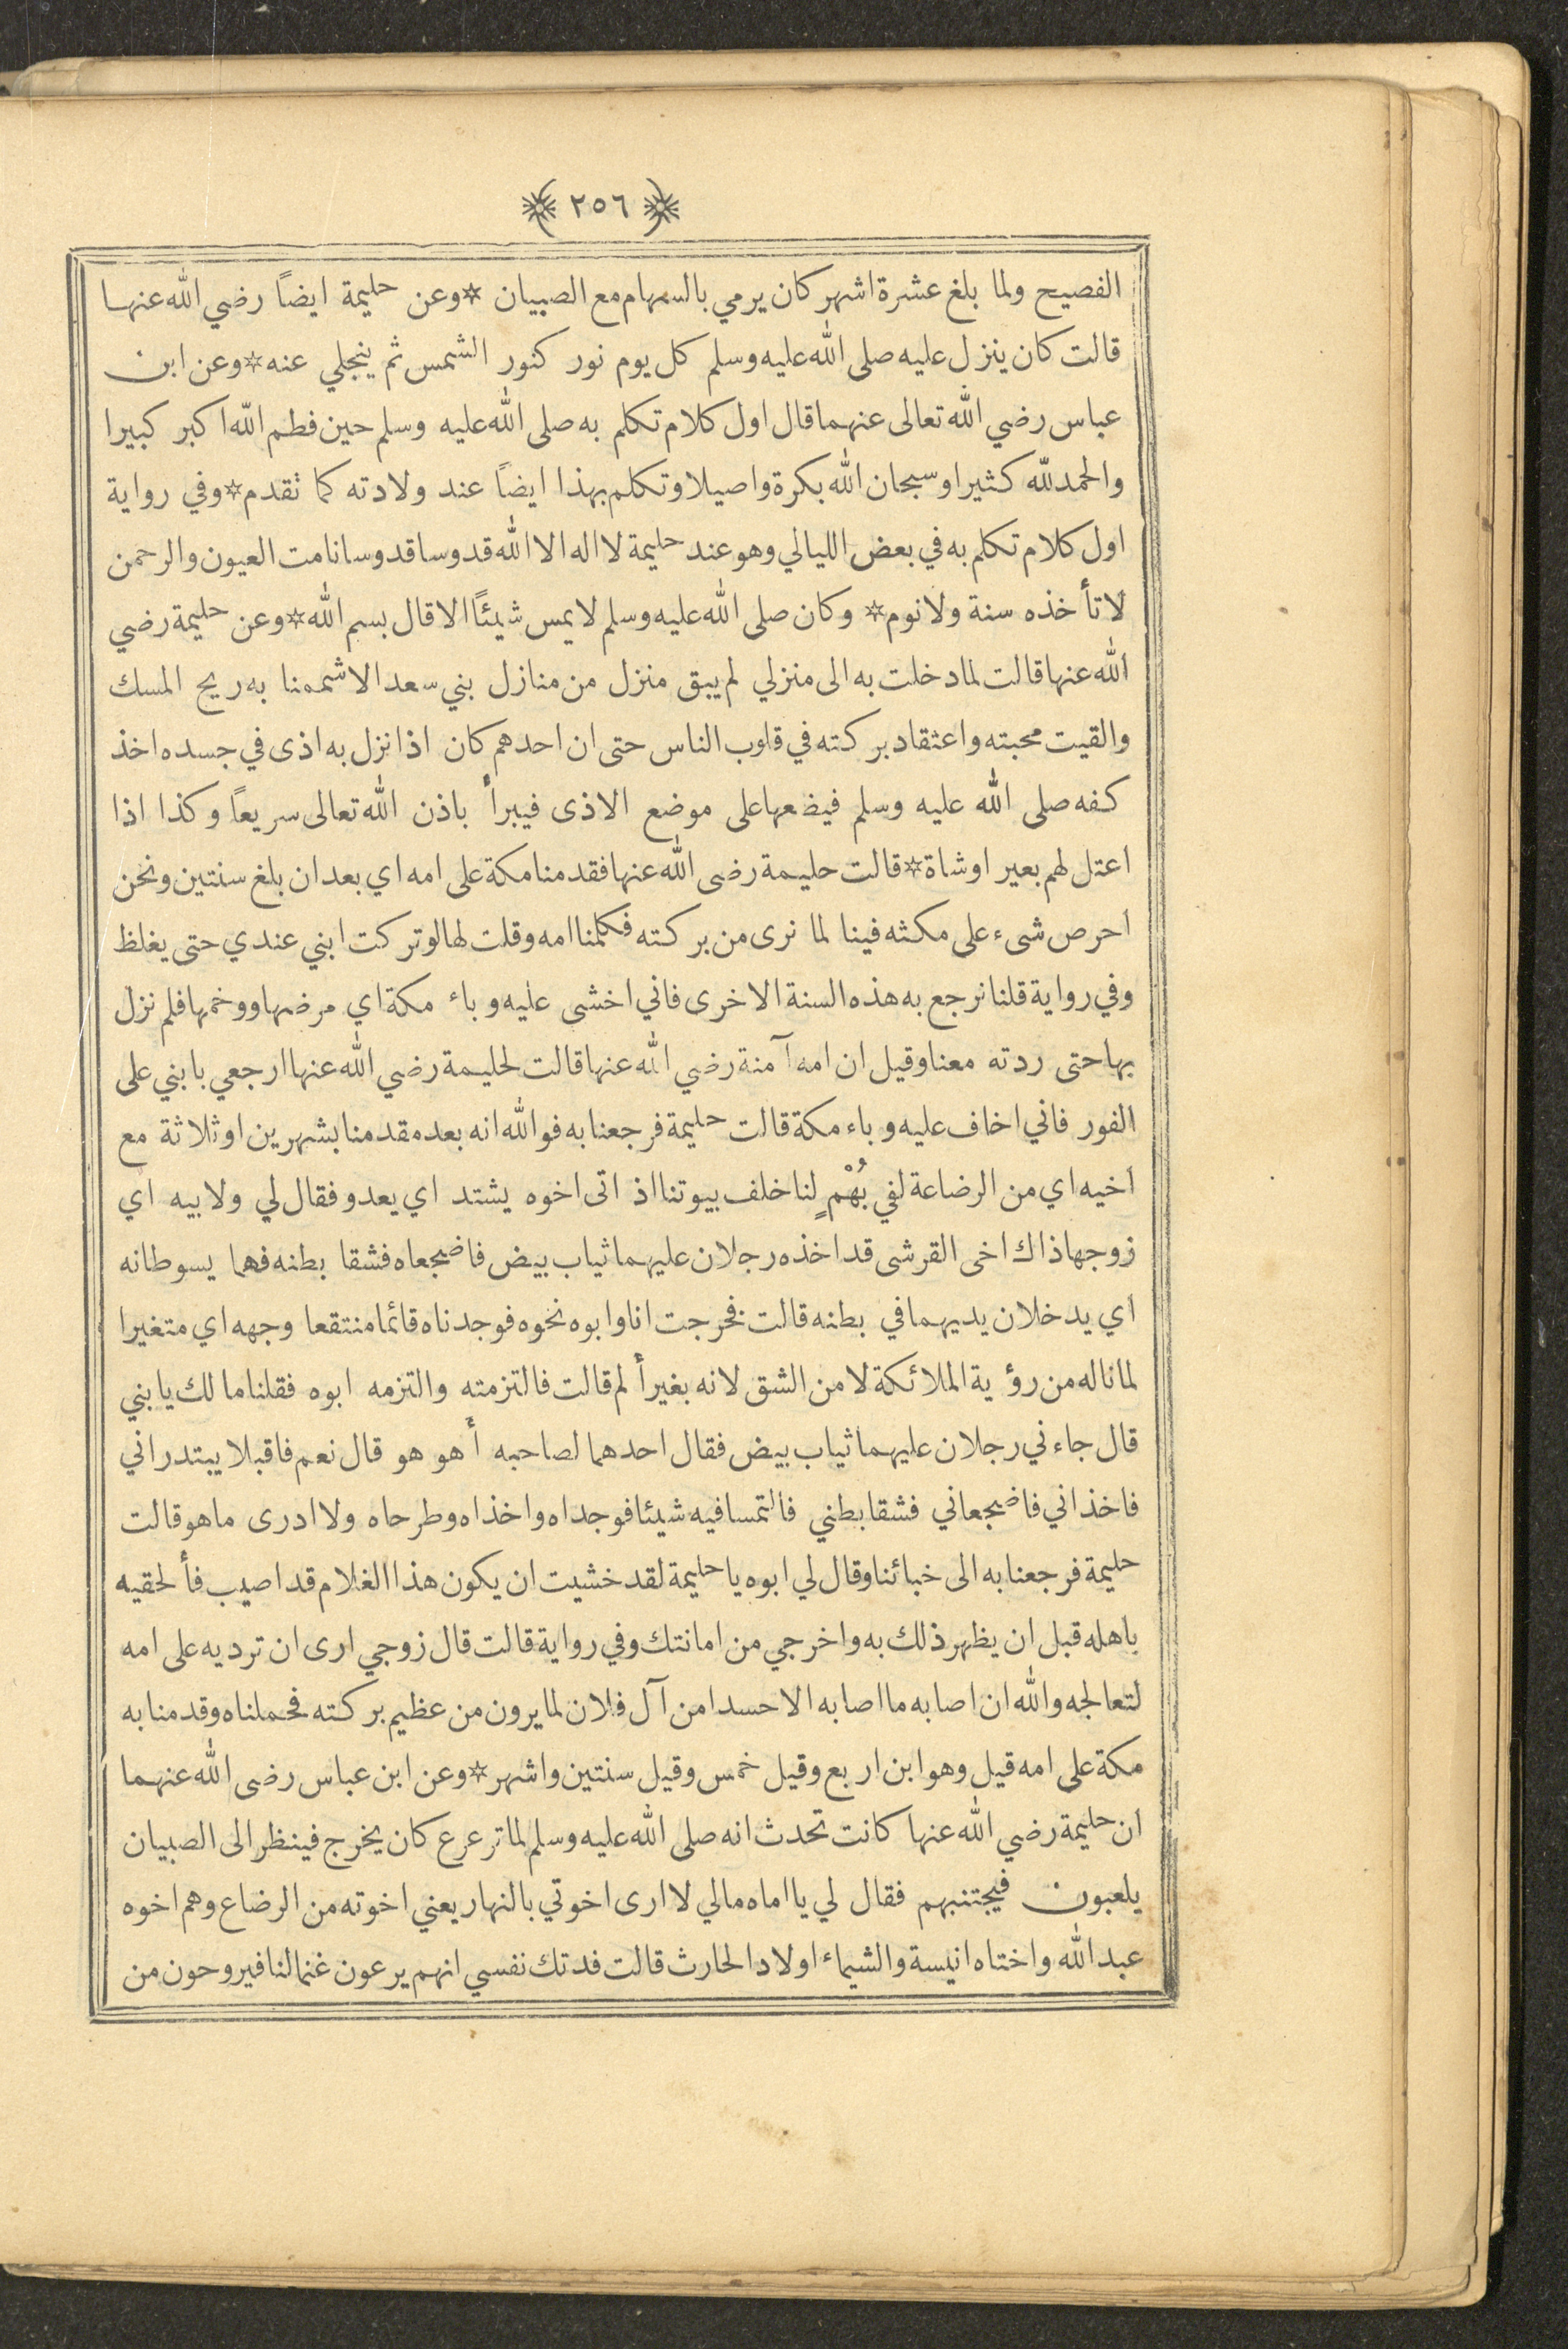 ﴿ ٢٥٦ ﴾
الفصيح ولما بلغ عشرة اشهر كان يرمي بالسهام مع الصبيان * وعن حليمة ايضاً رضي الله عنها
قالت كان ينزل عليه صلى الله عليه وسلم كل يوم نور كنور الشمس ثم ينجلي عنه * وعن ابن
عباس رضي الله تعالى عنهما قال اول كلام تكلم به صلى الله عليه وسلم حين فطم الله اكبر كبيرا
والحمد لله كثيرا وسبحان الله بكرة واصيلا وتكلم بهذا ايضاً عند ولادته كما تقدم * وفي رواية
اول كلام تكلم به في بعض الليالي وهو عند حليمة لا اله الا الله قدوسا قدوسا نامت العيون والرحمن
لا تأخذه سنة ولا نوم * وكان صلى الله عليه وسلم لا يمس شيئاً الا قال بسم الله * وعن حليمة رضي
الله عنها قالت لما دخلت به الى منزلي لم يبق منزل من منازل بني سعد الا شممنا به ريح المسك
والقيت محبته واعتقاد بركته في قلوب الناس حتى ان احدهم كان اذا نزل به اذى في جسده اخذ
كفه صلى الله عليه وسلم فيضعها على موضع الاذى فيبرأ باذن الله تعالى سريعاً وكذا اذا
اعتل لهم بعير او شاة * قالت حليمة رضى الله عنها فقدمنا مكة على امه اي بعد ان بلغ سنتين ونحن
احرص شىء على مكثه فينا لما نرى من بركته فكلمنا امه وقلت لها لو تركت ابني عندي حتى يغلظ
وفي رواية قلنا نرجع به هذه السنة الاخرى فاني اخشى عليه وباء مكة اي مرضها ووخمها فلم نزل
بها حتى ردته معنا وقيل ان امه آمنة رضي الله عنها قالت لحليمة رضي الله عنها ارجعي بابني على
الفور فاني اخاف عليه وباء مكة قالت حليمة فرجعنا به فوالله انه بعد مقدمنا بشهرين او ثلاثة مع
اخيه اي من الرضاعة لفي بُهْمٍ لنا خلف بيوتنا اذ اتى اخوه يشتد اي يعدو فقال لي ولابيه اي
زوجها ذاك اخى القرشى قد اخذه رجلان عليهما ثياب بيض فاضجعاه فشقا بطنه فهما يسوطانه
اي يدخلان يديهما في بطنه قالت فخرجت انا وابوه نحوه فوجدناه قائما منتقعا وجهه اي متغيرا
لما ناله من رؤية الملائكة لا من الشق لانه بغير ألم قالت فالتزمته والتزمه ابوه فقلنا مالك يا بني
قال جاءني رجلان عليهما ثياب بيض فقال احدهما لصاحبه أهو هو قال نعم فاقبلا يبتدراني
فاخذاني فاضجعاني فشقا بطني فالتمسا فيه شيئا فوجداه واخذاه وطرحاه ولا ادرى ما هو قالت
حليمة فرجعنا به الى خبائنا وقال لي ابوه يا حليمة لقد خشيت ان يكون هذا الغلام قد اصيب فألحقيه
باهله قبل ان يظهر ذلك به واخرجي من امانتك وفي رواية قالت قال زوجي ارى ان ترديه على امه
لتعالجه والله ان اصابه ما اصابه الا حسدا من آل فلان لما يرون من عظيم بركته فحملناه وقدمنا به
مكة على امه قيل وهو ابن اربع وقيل خمس وقيل سنتين واشهر * وعن ابن عباس رضى الله عنهما
ان حليمة رضي الله عنها كانت تحدث انه صلى الله عليه وسلم لما ترعرع كان يخرج فينظر الى الصبيان
يلعبون فيجتنبهم فقال لي يا اماه مالي لا ارى اخوتي بالنهار يعني اخوته من الرضاع وهم اخوه
عبد الله واختاه انيسة والشيماء اولاد الحارث قالت فدتك نفسي انهم يرعون غنما لنا فيروحون من